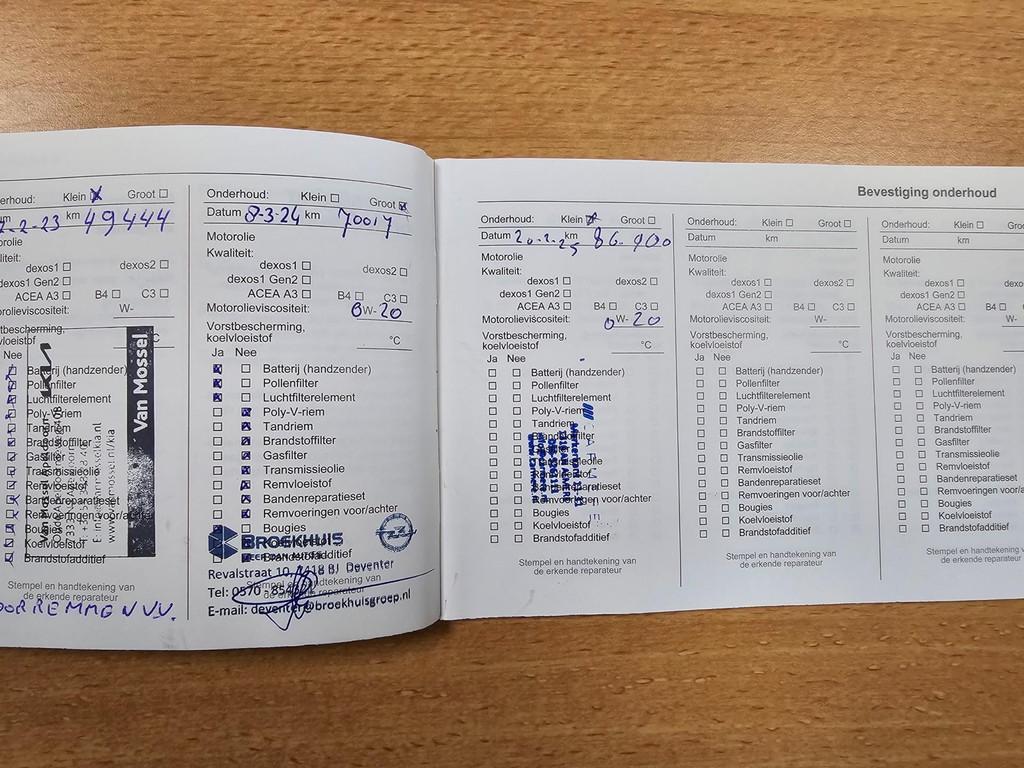 Onderhoud: Klein ☒ Groot ☐
km 49444
dexos1 ☐ dexos2 ☐
dexos1 Gen2 ☐
ACEA A3 ☐ B4 ☐ C3 ☐
W-
Nee
Batterij (handzender)
Pollenfilter
Luchtfilterelement
Poly-V-riem
Tandriem
Brandstoffilter
Gasfilter
Transmissieolie
Remvloeistof
Bandenreparatieset
Remvoeringen voor/achter
Bougies
Koelvloeistof
Brandstofadditief
Van Mossel
Stempel en handtekening van
de erkende reparateur
Onderhoud: Klein ☐ Groot ☒
Datum 8-3-24 km 70017
Motorolie
Kwaliteit:
dexos1 ☐ dexos2 ☐
dexos1 Gen2 ☐
ACEA A3 ☐ B4 ☐ C3 ☐
Motorolieviscositeit: 0W-20
Vorstbescherming,
koelvloeistof °C
Ja Nee
☒ ☐ Batterij (handzender)
☒ ☐ Pollenfilter
☒ ☐ Luchtfilterelement
☐ ☒ Poly-V-riem
☐ ☒ Tandriem
☐ ☒ Brandstoffilter
☐ ☒ Gasfilter
☐ ☒ Transmissieolie
☐ ☒ Remvloeistof
☐ ☒ Bandenreparatieset
☐ ☒ Remvoeringen voor/achter
Bougies
BROEKHUIS
MEER DAN AUTO'S
Brandstofadditief
Revalstraat 10, 7418 BJ Deventer
Stempel en handtekening van
de erkende reparateur
Tel: 0570
E-mail: deventer@broekhuisgroep.nl
Bevestiging onderhoud
Onderhoud: Klein ☒ Groot ☐
Datum 20-2-25 km 86.900
Motorolie
Kwaliteit:
dexos1 ☐ dexos2 ☐
dexos1 Gen2 ☐
ACEA A3 ☐ B4 ☐ C3 ☐
Motorolieviscositeit: 0W-20
Vorstbescherming,
koelvloeistof °C
Ja Nee
☐ ☐ Batterij (handzender)
☐ ☐ Pollenfilter
☐ ☐ Luchtfilterelement
☐ ☐ Poly-V-riem
☐ ☐ Tandriem
☐ ☐ Brandstoffilter
☐ ☐ Gasfilter
☐ ☐ Transmissieolie
☐ ☐ Remvloeistof
☐ ☐ Bandenreparatieset
☐ ☐ Remvoeringen voor/achter
☐ ☐ Bougies
☐ ☐ Koelvloeistof
☐ ☐ Brandstofadditief
Stempel en handtekening van
de erkende reparateur
Onderhoud: Klein ☐ Groot ☐
Datum km
Motorolie
Kwaliteit:
dexos1 ☐ dexos2 ☐
dexos1 Gen2 ☐
ACEA A3 ☐ B4 ☐ C3 ☐
Motorolieviscositeit: W-
Vorstbescherming,
koelvloeistof °C
Ja Nee
☐ ☐ Batterij (handzender)
☐ ☐ Pollenfilter
☐ ☐ Luchtfilterelement
☐ ☐ Poly-V-riem
☐ ☐ Tandriem
☐ ☐ Brandstoffilter
☐ ☐ Gasfilter
☐ ☐ Transmissieolie
☐ ☐ Remvloeistof
☐ ☐ Bandenreparatieset
☐ ☐ Remvoeringen voor/achter
☐ ☐ Bougies
☐ ☐ Koelvloeistof
☐ ☐ Brandstofadditief
Stempel en handtekening van
de erkende reparateur
Onderhoud: Klein ☐
Datum km
Motorolie
Kwaliteit:
dexos1 ☐
dexos1 Gen2 ☐
ACEA A3 ☐ B4
Motorolieviscositeit: W-
Vorstbescherming,
koelvloeistof
Ja Nee
☐ ☐ Batterij (handzender)
☐ ☐ Pollenfilter
☐ ☐ Luchtfilterelement
☐ ☐ Poly-V-riem
☐ ☐ Tandriem
☐ ☐ Brandstoffilter
☐ ☐ Gasfilter
☐ ☐ Transmissieolie
☐ ☐ Remvloeistof
☐ ☐ Bandenreparatieset
☐ ☐ Remvoeringen
☐ ☐ Bougies
☐ ☐ Koelvloeistof
☐ ☐ Brandstofadditief